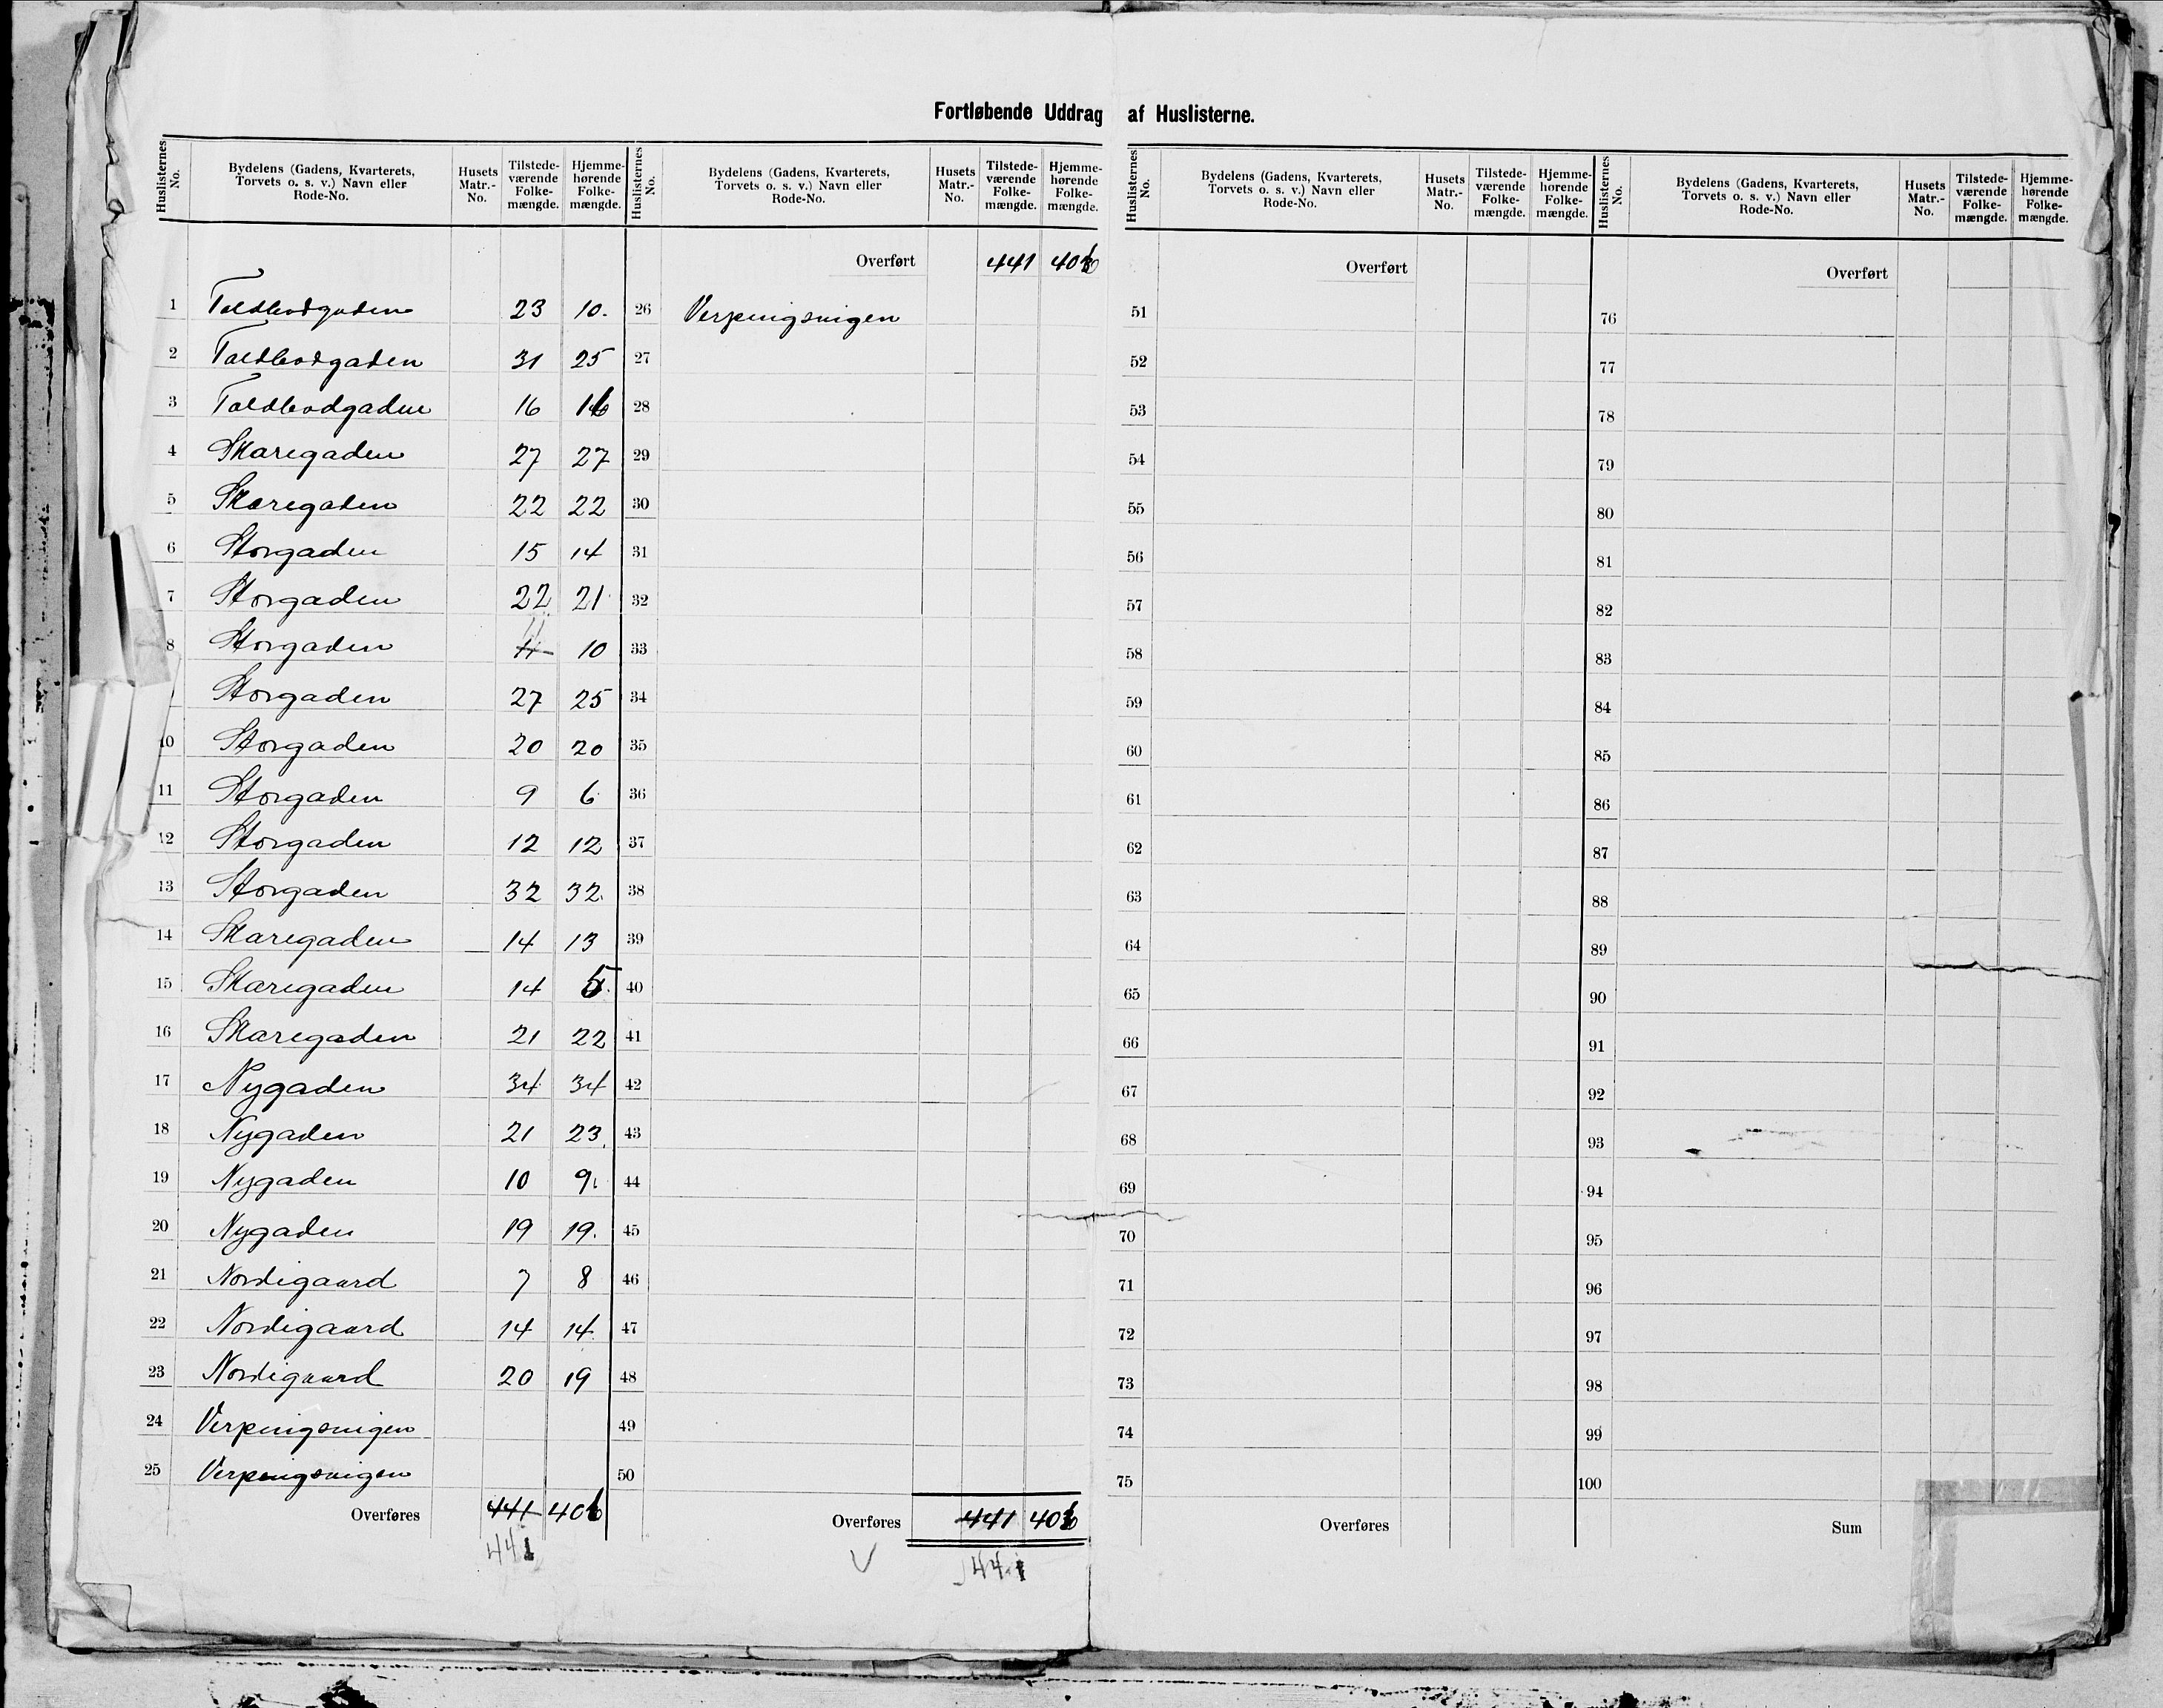 Fortløbende Uddrag af Huslisterne.
Huslisternes No. Bydelens (Gadens, Kvarterets, Torvets o. s. v.) Navn eller Rode-No. Husets Matr.-No. Tilstede-værende Folke-mængde. Hjemme-hørende Folke-mængde.
1 Toldbodgaden 23 10.
2 Toldbodgaden 31 25
3 Toldbodgaden 16 16
4 Skaregaden 27 27
5 Skaregaden 22 22
6 Storgaden 15 14
7 Storgaden 22 21
8 Storgaden 11 10
Storgaden 27 25
10 Storgaden 20 20
11 Storgaden 9 6
12 Storgaden 12 12
13 Storgaden 32 32
14 Skaregaden 14 13
15 Skaregaden 14 5.
16 Skaregaden 21 22
17 Nygaden 34 34
18 Nygaden 21 23
19 Nygaden 10 9
20 Nygaden 19 19.
21 Nordigaard 7 8
22 Nordigaard 14 14
23 Nordigaard 20 19
24 Verpingsvigen
25 Verpingsvigen
Overføres 441 406
441
Huslisternes No. Bydelens (Gadens, Kvarterets, Torvets o. s. v.) Navn eller Rode-No. Husets Matr.-No. Tilstede-værende Folke-mængde. Hjemme-hørende Folke-mængde.
Overført 441 406
26 Verpingsvigen
27
28
29
30
31
32
33
34
35
36
37
38
39
40
41
42
43
44
45
46
47
48
49
50
Overføres 441 406
441
Huslisternes No. Bydelens (Gadens, Kvarterets, Torvets o. s. v.) Navn eller Rode-No. Husets Matr.-No. Tilstede-værende Folke-mængde. Hjemme-hørende Folke-mængde.
Overført
51
52
53
54
55
56
57
58
59
60
61
62
63
64
65
66
67
68
69
70
71
72
73
74
75
Overføres
Huslisternes No. Bydelens (Gadens, Kvarterets, Torvets o. s. v.) Navn eller Rode-No. Husets Matr.-No. Tilstede-værende Folke-mængde. Hjemme-hørende Folke-mængde.
Overført
76
77
78
79
80
81
82
83
84
85
86
87
88
89
90
91
92
93
94
95
96
97
98
99
100
Sum